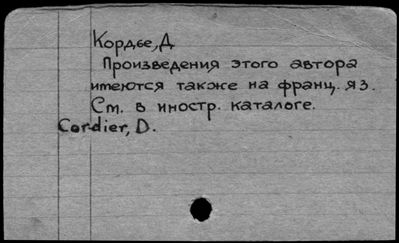 Кордье, Д
Произведения этого автора
имеются также на франц. яз.
См. в иностр. каталоге.
Cordier, D.